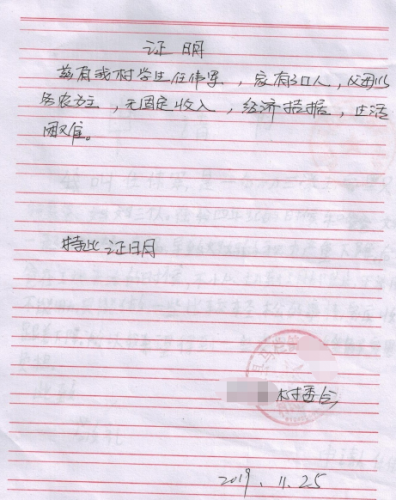 证明
兹有我村学生任伟军，家有3口人，父母以
务农为主，无固定收入，经济拮据，生活
困难。
特此证明
村委会
2019.11.25